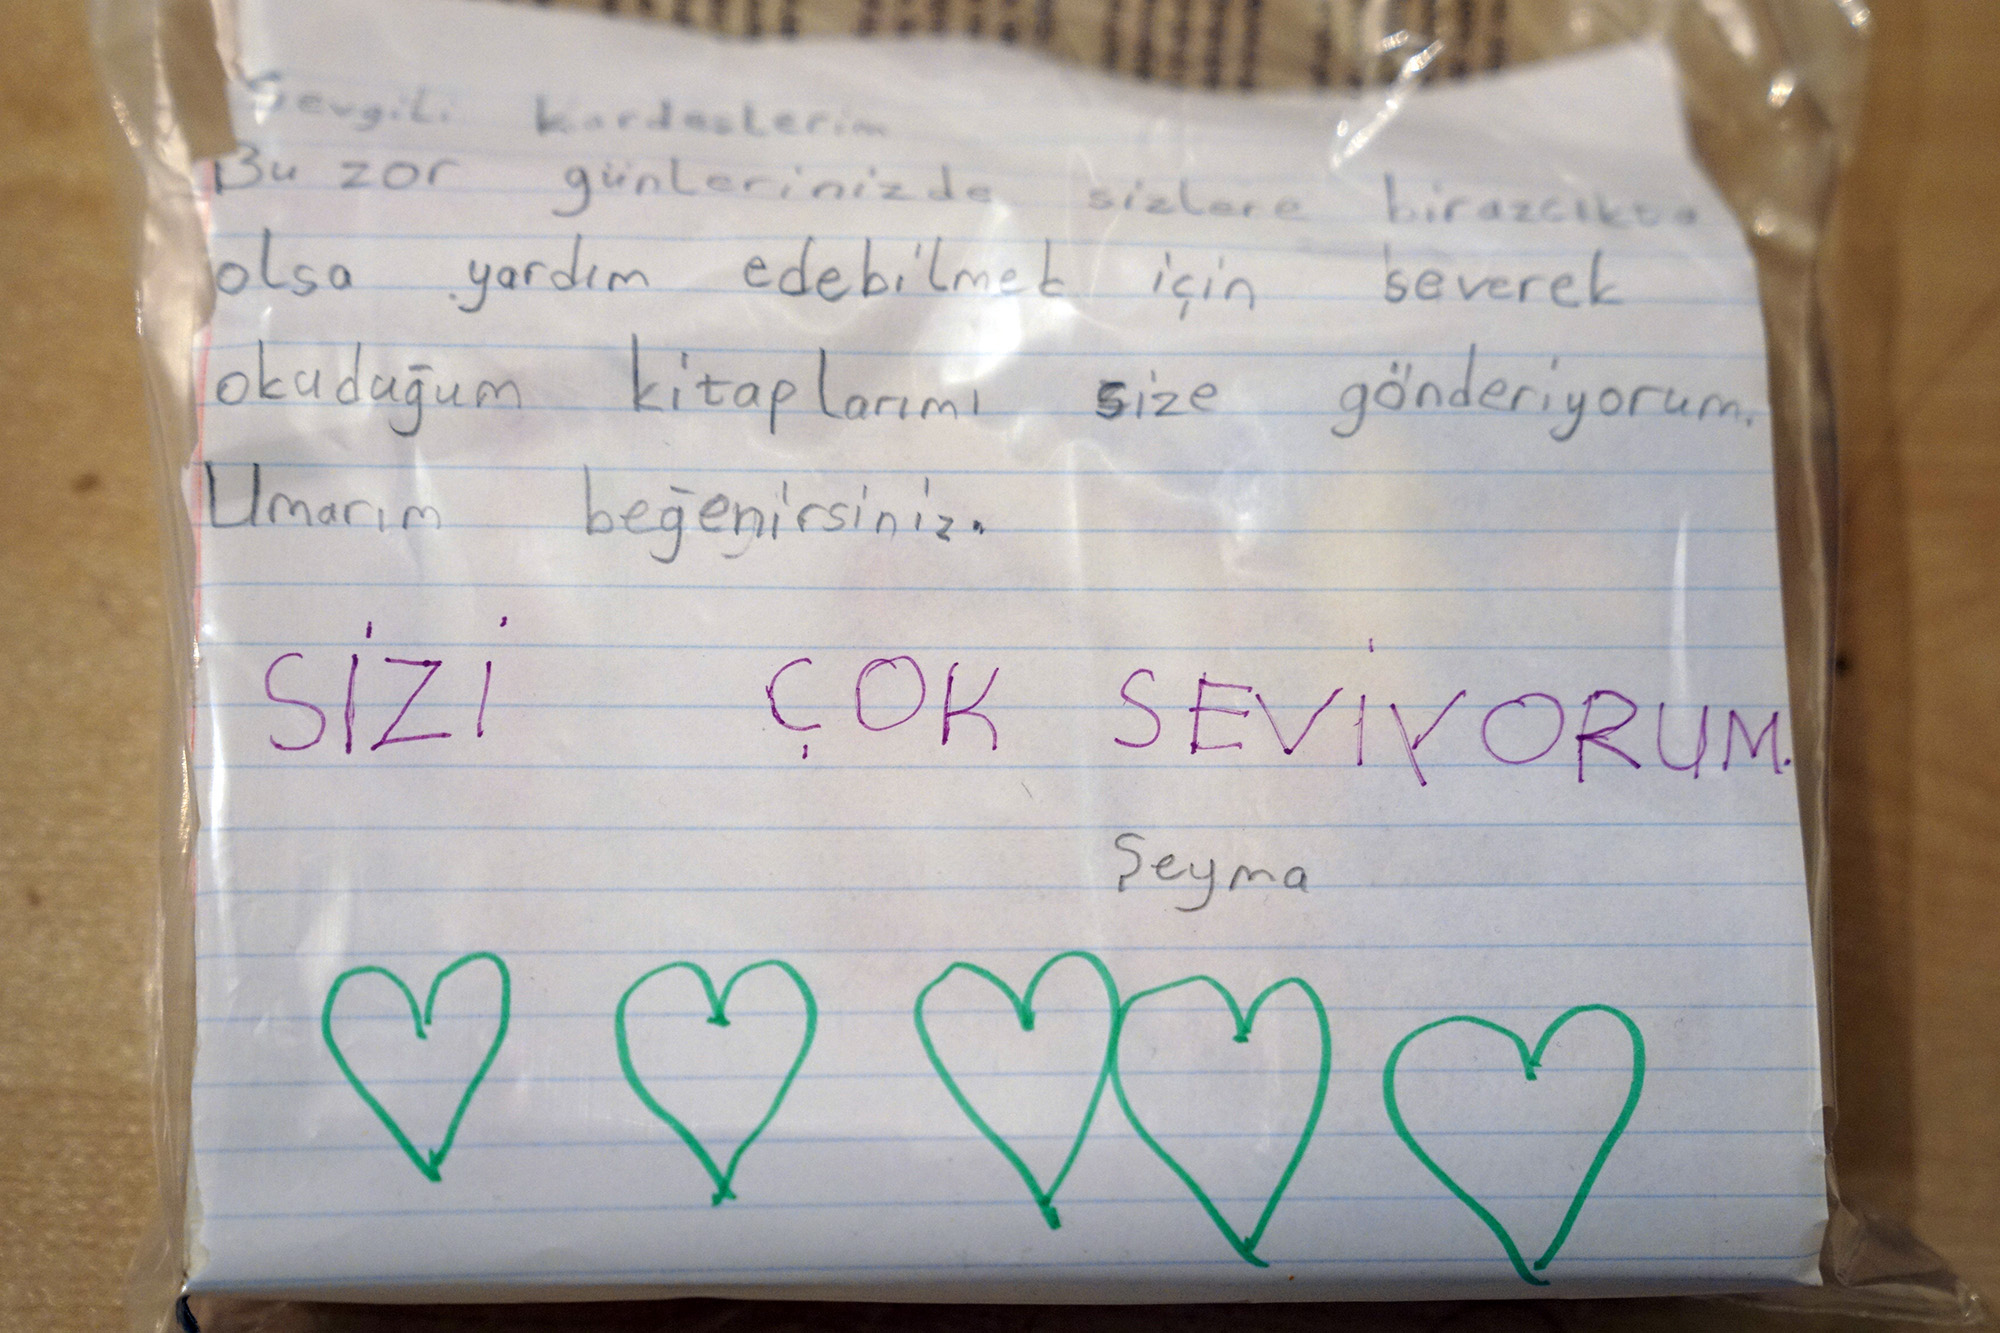 Sevgili kardeşlerim
Bu zor günlerinizde sizlere birazcıkta
olsa yardım edebilmek için severek
okuduğum kitaplarımı size gönderiyorum.
Umarım beğenirsiniz.
SİZİ ÇOK SEVİYORUM.
Şeyma